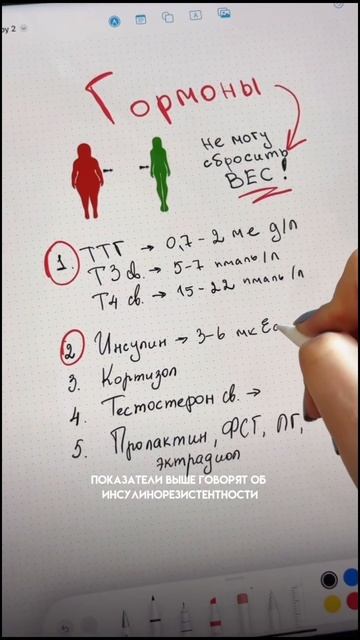 ру 2
Гормоны
не могу
сбросить
ВЕС!
1. ТТГ → 0,7 - 2 ме д/л
Т3 св. → 5-7 пмаль/л
Т4 св. → 15-22 пмаль/л
2 Инсулин → 3-6 мкЕд
3. Кортизол
4. Тестостерон св. →
5. Пролактин, ФСГ, ЛГ,
эктрадиол
ПОКАЗАТЕЛИ ВЫШЕ ГОВОРЯТ ОБ
ИНСУЛИНОРЕЗИСТЕНТНОСТИ